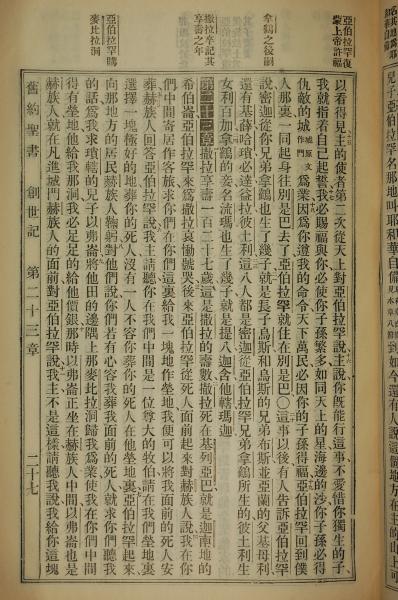 亞伯拉罕復
蒙上帝許福
拿鶴之後嗣
撒拉卒記其
享壽之年
亞伯拉罕購
麥比拉洞
以看得見主的使者第二次從天上對亞伯拉罕說主說你旣能行這事不愛惜你獨生的子
我就指着自己起誓我必賜福與你必使你子孫繁多如同天上的星海邊的沙你子孫必得
仇敵的城城原文作門爲業因爲你遵我的命令天下萬民必因你的子孫得福亞伯拉罕回到僕
人那裏一同起身往別是巴去了亞伯拉罕就住在別是巴〇這事以後有人告訴亞伯拉罕
說密迦從你兄弟拿鶴也生了幾子就是長子烏斯和烏斯的兄弟布斯並亞蘭的父基母利
還有基薛哈瑣必達益拉彼土利這八人都是密迦從亞伯拉罕兄弟拿鶴所生的彼土利生
女利百加拿鶴的妾名流瑪也生了幾子就是提八迦含他轄瑪迦
第二十三章撒拉享壽一百二十七歲這是撒拉的壽數撒拉死在基列亞巴就是迦南地的
希伯崙亞伯拉罕來爲撒拉哀慟號哭後來亞伯拉罕從死人面前起來對赫族人說我在你
們中間寄居作客旅求你們在你們這裏給我一塊地作塋地我便可以將我面前的死人安
葬赫族人回答亞伯拉罕說我主請聽你在我們中間是一位尊大的牧伯請在我們塋地裏
選擇一塊極好的地葬你的死人沒有一人不容你葬你的死人在他塋地裏亞伯拉罕起來
向那地方的居民赫族人鞠躬對他們說你們若有心容我葬我面前的死人就求你們聽我
的話爲我求瑣轄的兒子以弗崙將他田的邊隅上那麥比拉洞歸我爲業使我在你們中間
得有塋地他給我那洞我必足足的給他價銀那時以弗崙正坐在赫族人中間以弗崙也是
赫族人就在凡進城門赫族人的面前對亞伯拉罕說我主不是這樣請聽我說我給你這塊
舊約聖書　創世記　第二十三章　二十七